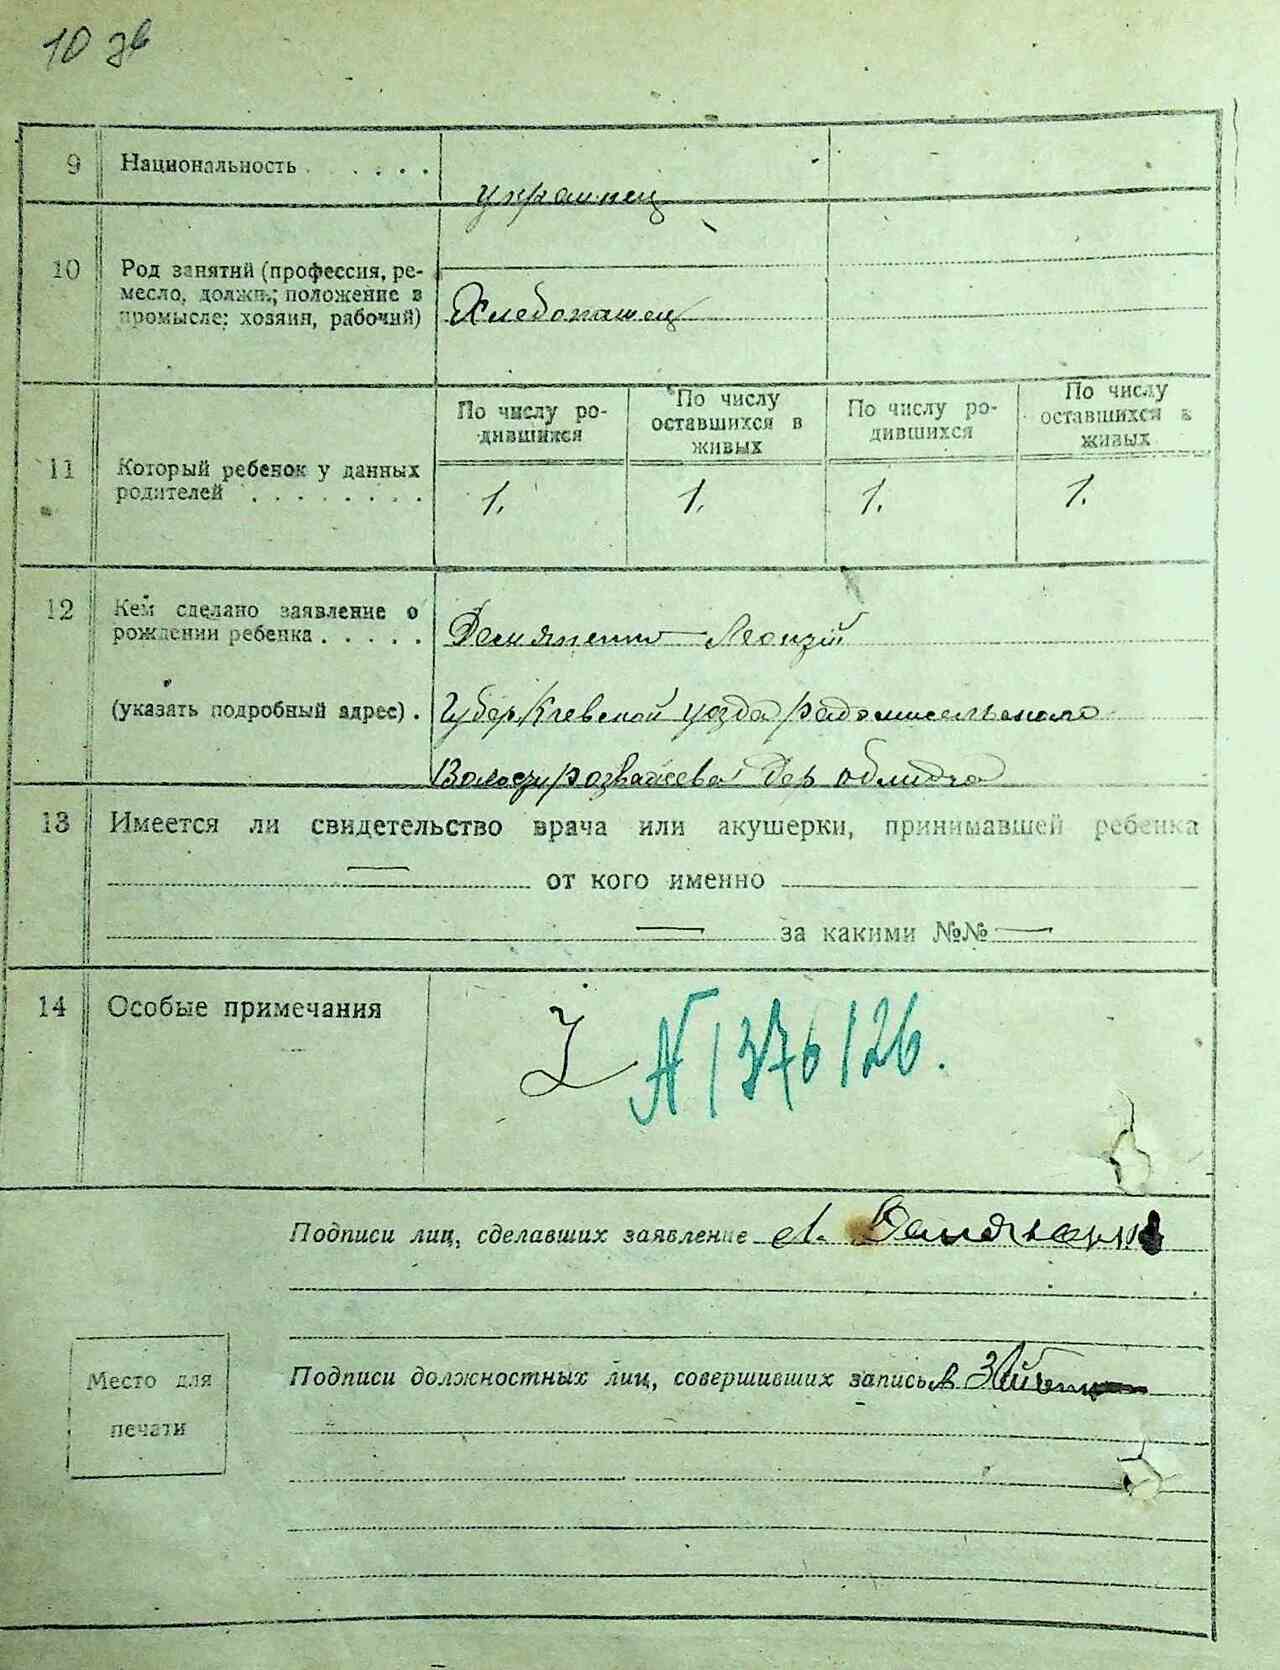 10 зв
9 Национальность . . . . . .
украинец
10 Род занятий (профессия, ре-
месло, должн.; положение в
промысле: хозяин, рабочий)
Хлебопашец
По числу ро-
дившихся
По числу
оставшихся в
живых
По числу ро-
дившихся
По числу
оставшихся в
живых
11 Который ребенок у данных
родителей . . . . . . . .
1. 1. 1. 1.
12 Кем сделано заявление о
рождении ребенка . . . . .
Демяненко Леонзій
(указать подробный адрес) .
Губер Киевской уезда Радомисельского
Волости Розважева дер облидка
13 Имеется ли свидетельство врача или акушерки, принимавшей ребенка
— от кого именно
— за какими №№ —
14 Особые примечания
N 1376/26.
Подписи лиц, сделавших заявление Л. Демяненко
Подписи должностных лиц, совершивших запись
Место для
печати